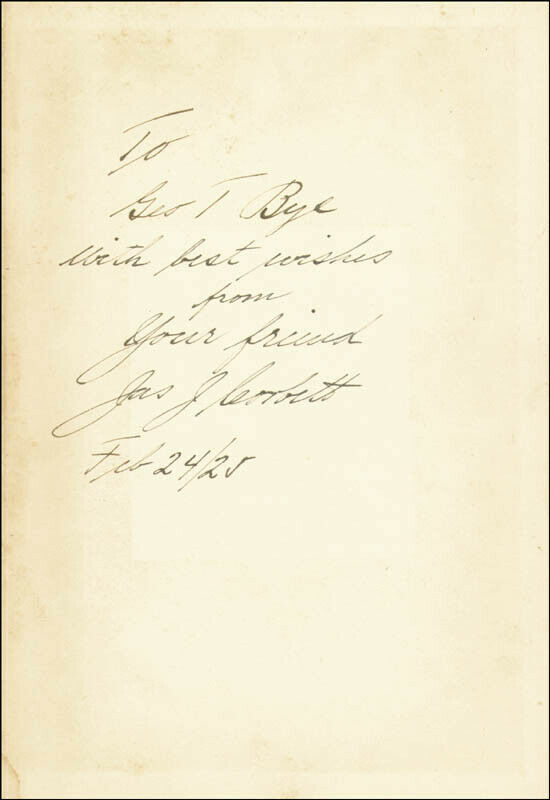 To
Geo T Bye
with best wishes
from
Your friend
Jas J Corbett
Feb 24/25